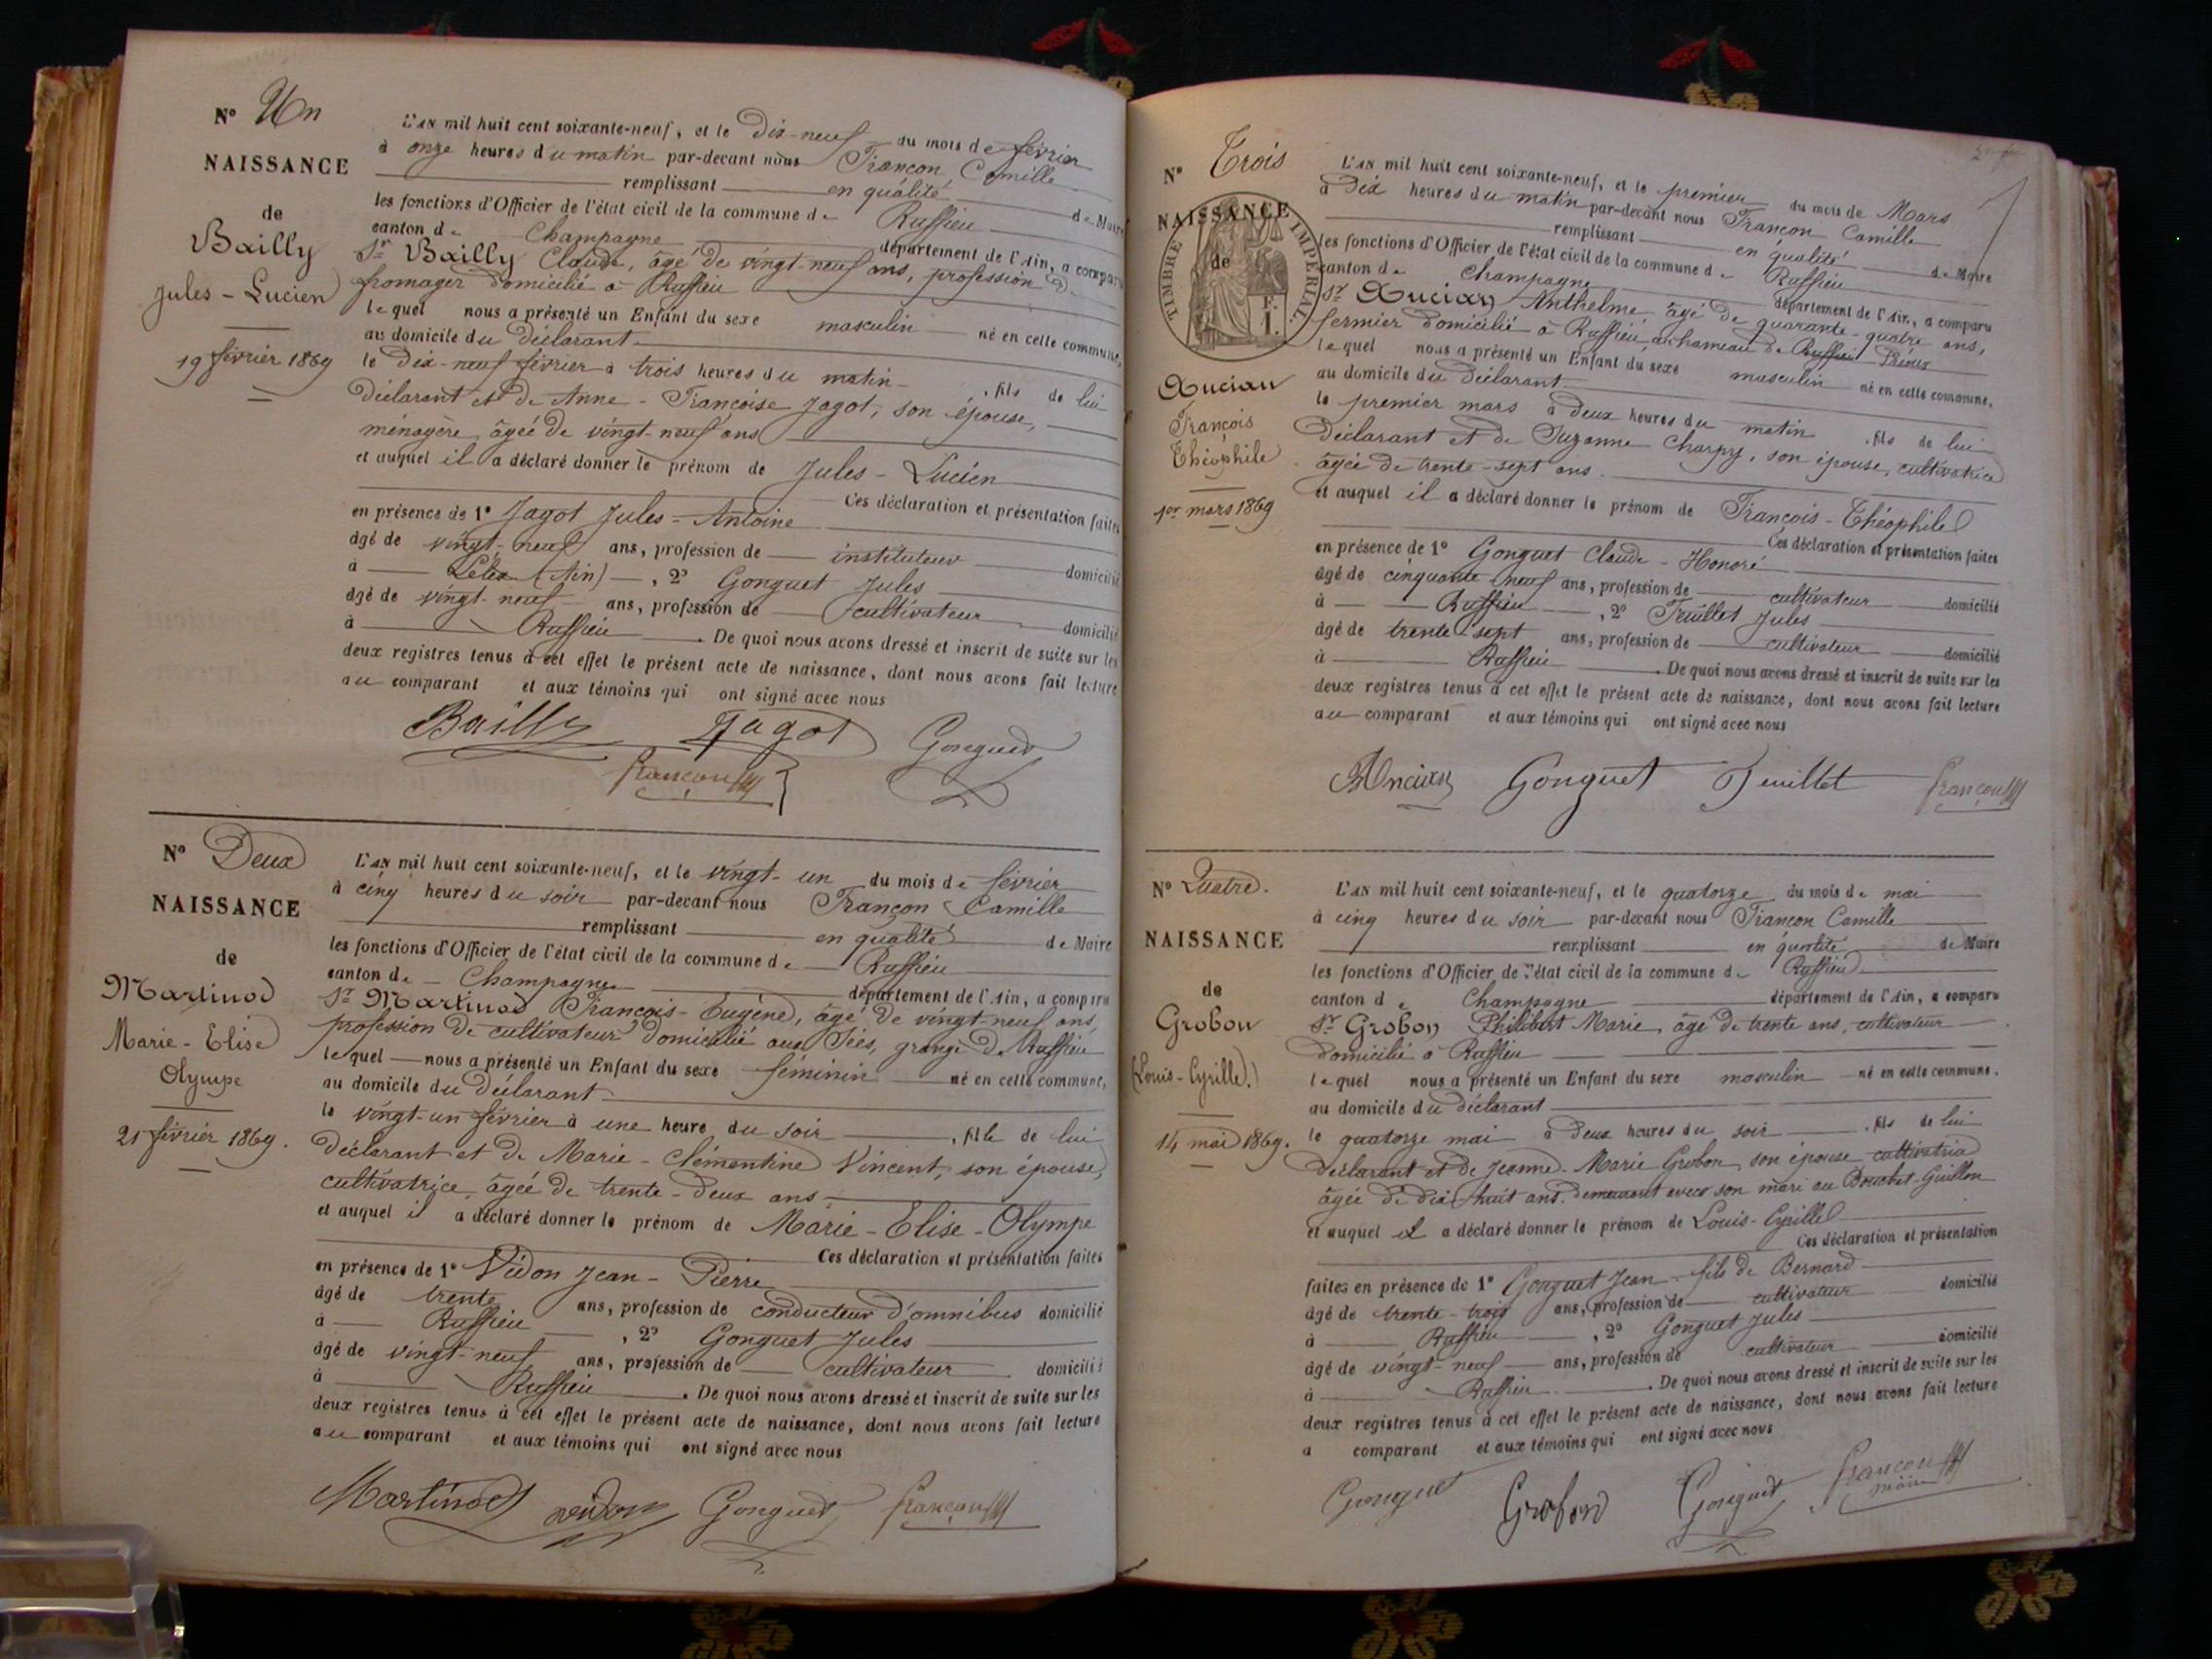 N° Un
NAISSANCE
de
Bailly
Jules - Lucien
19 février 1869
L'AN mil huit cent soixante-neuf, et le Dix-neuf du mois de février
à onze heures du matin par-devant nous Françon Camille
remplissant en qualité de Maire
les fonctions d'Officier de l'état civil de la commune de Ruffieu
canton de Champagne département de l'Ain, a comparu
Sr Bailly Claude, âgé de vingt-neuf ans, profession de
fromager domicilié à Ruffieu
lequel nous a présenté un Enfant du sexe masculin né en cette commune,
au domicile du déclarant
le Dix-neuf février à trois heures du matin, fils de lui
déclarant et de Anne-Françoise Jagot, son épouse,
ménagère, âgée de vingt-neuf ans
et auquel il a déclaré donner le prénom de Jules - Lucien
Ces déclaration et présentation faites
en présence de 1° Jagot Jules-Antoine
âgé de vingt-neuf ans, profession de instituteur domicilié
à Lélex (Ain), 2° Gonguet Jules
âgé de vingt-neuf ans, profession de cultivateur domicilié
à Ruffieu. De quoi nous avons dressé et inscrit de suite sur les
deux registres tenus à cet effet le présent acte de naissance, dont nous avons fait lecture
au comparant et aux témoins qui ont signé avec nous
Bailly Jagot Gonguet
françon
N° Deux
NAISSANCE
de
Martinod
Marie - Elise
Olympe
21 février 1869.
L'AN mil huit cent soixante-neuf, et le vingt-un du mois de février
à cinq heures du soir par-devant nous Françon Camille
remplissant en qualité de Maire
les fonctions d'Officier de l'état civil de la commune de Ruffieu
canton de Champagne département de l'Ain, a comparu
Sr Martinod François-Eugène, âgé de vingt-neuf ans,
profession de cultivateur domicilié aux Séès, grange de Ruffieu
lequel nous a présenté un Enfant du sexe féminin né en cette commune,
au domicile du déclarant
le vingt-un février à une heure du soir, fille de lui
déclarant et de Marie-Clémentine Vincent, son épouse,
cultivatrice, âgée de trente-deux ans
et auquel il a déclaré donner le prénom de Marie-Elise-Olympe
Ces déclaration et présentation faites
en présence de 1° Vidon Jean-Pierre
âgé de trente ans, profession de conducteur d'omnibus domicilié
à Ruffieu, 2° Gonguet Jules
âgé de vingt-neuf ans, profession de cultivateur domicilié
à Ruffieu. De quoi nous avons dressé et inscrit de suite sur les
deux registres tenus à cet effet le présent acte de naissance, dont nous avons fait lecture
au comparant et aux témoins qui ont signé avec nous
Martinod vidon Gonguet françon
N° Trois
NAISSANCE
de
TIMBRE IMPERIAL.
F. 1.
Ancian
François
Théophile
1er mars 1869
L'AN mil huit cent soixante-neuf, et le premier du mois de Mars
à Dix heures du matin par-devant nous Françon Camille
remplissant en qualité de Maire
les fonctions d'Officier de l'état civil de la commune de Ruffieu
canton de Champagne département de l'Ain, a comparu
Sr Ancian Anthelme âgé de quarante-quatre ans,
fermier domicilié à Ruffieu, au hameau de Ruffieu
lequel nous a présenté un Enfant du sexe masculin né en cette commune,
au domicile du déclarant
le premier mars à deux heures du matin, fils de lui
déclarant et de Suzanne Charpy, son épouse, cultivatrice
âgée de trente-sept ans.
et auquel il a déclaré donner le prénom de François-Théophile
Ces déclaration et présentation faites
en présence de 1° Gonguet Claude-Honoré
âgé de cinquante neuf ans, profession de cultivateur domicilié
à Ruffieu, 2° Feuillet Jules
âgé de trente-sept ans, profession de cultivateur domicilié
à Ruffieu. De quoi nous avons dressé et inscrit de suite sur les
deux registres tenus à cet effet le présent acte de naissance, dont nous avons fait lecture
au comparant et aux témoins qui ont signé avec nous
Ancian Gonguet Feuillet françon
N° Quatre.
NAISSANCE
de
Grobon
(Louis-Cyrille.)
14 mai 1869.
L'AN mil huit cent soixante-neuf, et le quatorze du mois de mai
à cinq heures du soir par-devant nous Françon Camille
remplissant en qualité de Maire
les fonctions d'Officier de l'état civil de la commune de Ruffieu
canton de Champagne département de l'Ain, a comparu
Sr Grobon Philibert Marie, âgé de trente ans, cultivateur
domicilié à Ruffieu
lequel nous a présenté un Enfant du sexe masculin né en cette commune,
au domicile du déclarant
le quatorze mai à deux heures du soir, fils de lui
déclarant et de Jeanne-Marie Grobon, son épouse cultivatrice
âgée de dix-huit ans. demeurant avec son mari au Bouchet-Guillon
et auquel il a déclaré donner le prénom de Louis-Cyrille
Ces déclaration et présentation
faites en présence de 1° Gonguet Jean fils de Bernard
âgé de trente-trois ans, profession de cultivateur domicilié
à Ruffieu, 2° Gonguet Jules
âgé de vingt-neuf ans, profession de cultivateur domicilié
à Ruffieu. De quoi nous avons dressé et inscrit de suite sur les
deux registres tenus à cet effet le présent acte de naissance, dont nous avons fait lecture
a comparant et aux témoins qui ont signé avec nous
Gonguet Grobon Gonguet françon
maire